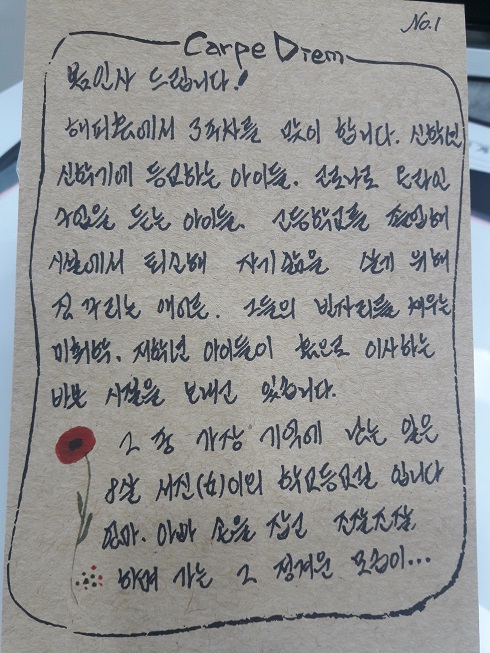 No.1
Carpe Diem
봄인사 드립니다!
해피홈에서 3주차를 맞이 합니다. 신학년
신학기에 등교하는 아이들. 코로나로 온라인
수업을 듣는 아이들. 고등학교를 졸업해
시설에서 퇴소해 자기삶을 살기 위해
짐 꾸리는 애어른. 그들의 빈자리를 채우는
미취학. 저학년 아이들이 홈으로 이사하는
바쁜 시절을 보내고 있습니다.
그 중 가장 기억에 남는 일은
8살 서진(女)이의 학교등교길 입니다
엄마. 아빠 손을 잡고 조잘조잘
하며 가는 그 정겨운 모습이...